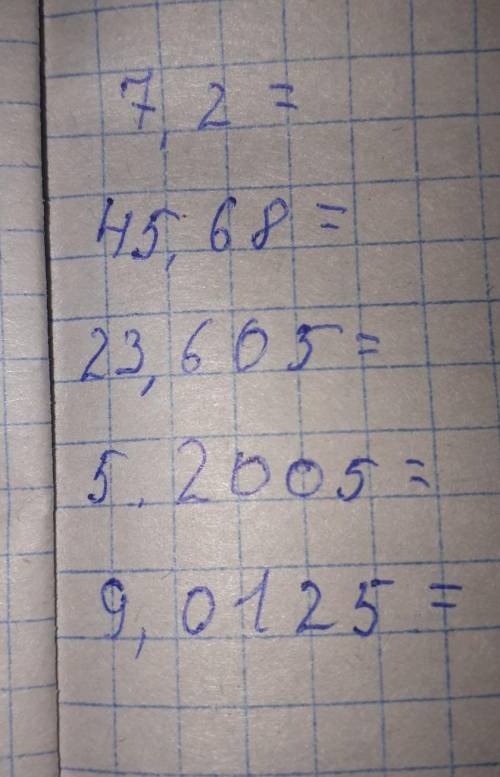 7,2 =
45,68 =
23,605 =
5.2005 =
9,0125 =